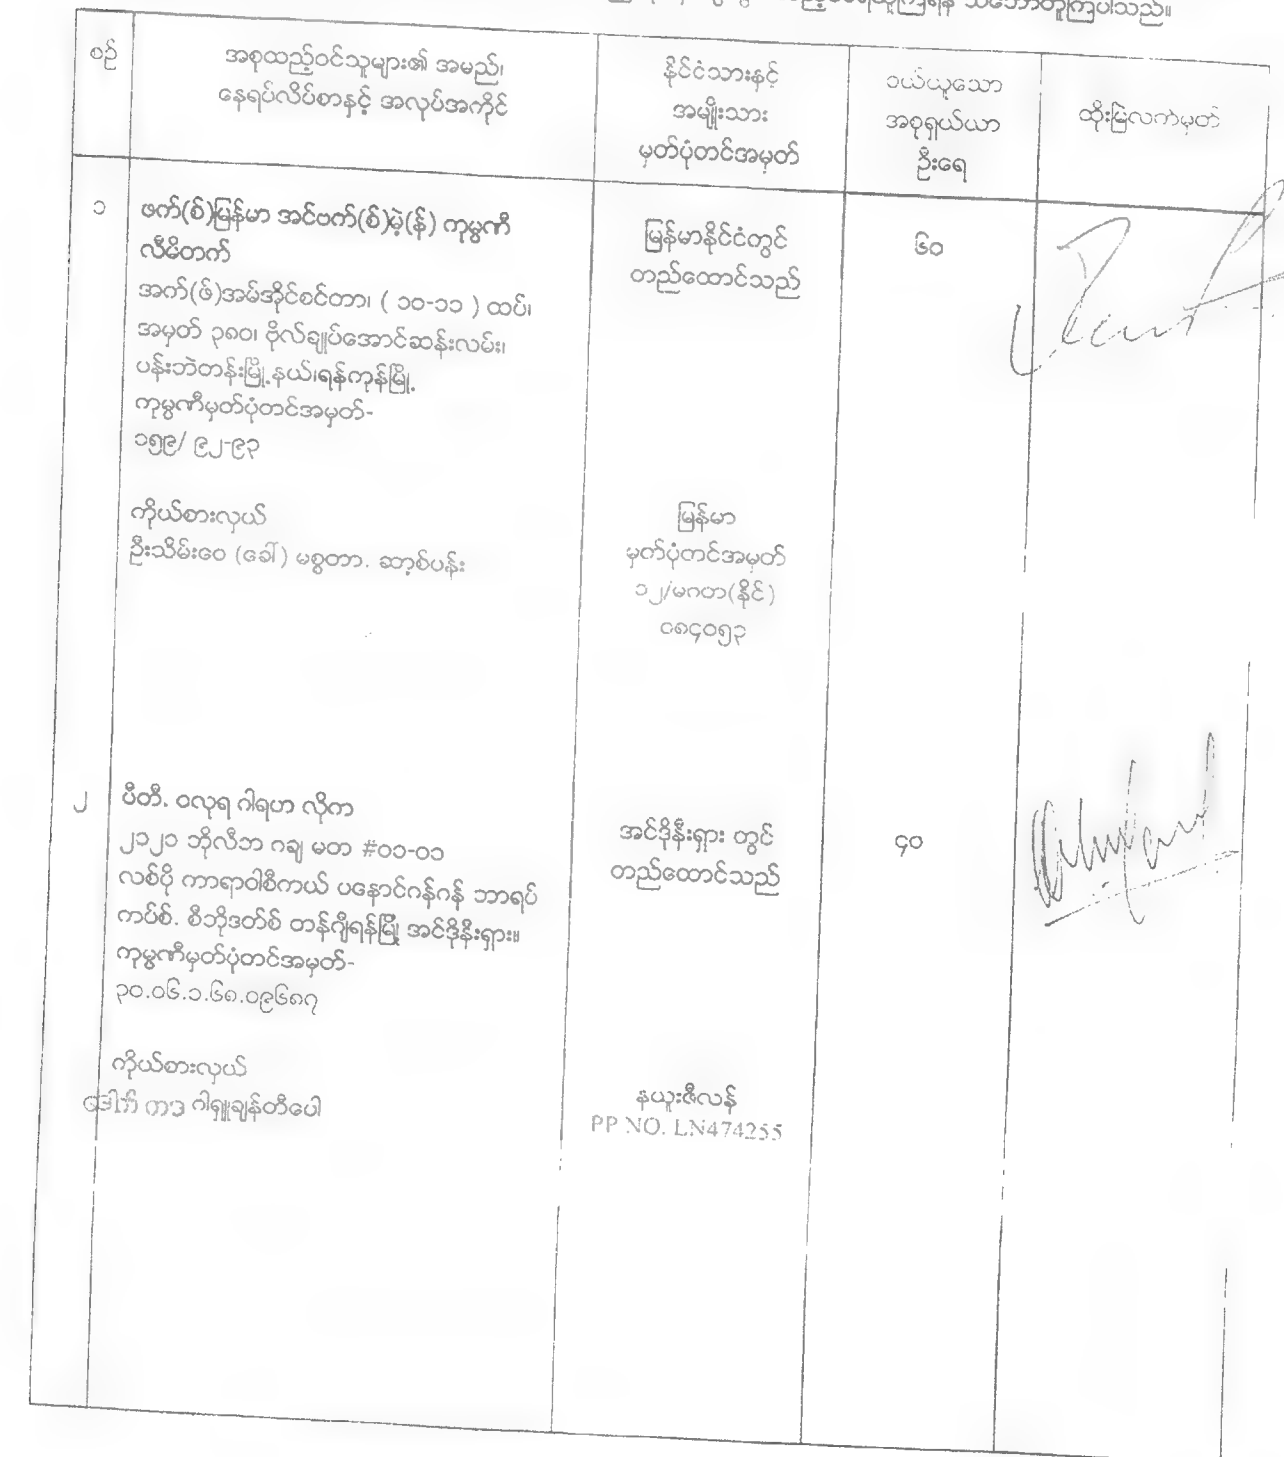 သဘောတူကြပါသည်။
စဉ်
အစုထည့်ဝင်သူများ၏ အမည်၊
နေရပ်လိပ်စာနှင့် အလုပ်အကိုင်
နိုင်ငံသားနှင့်
အမျိုးသား
မှတ်ပုံတင်အမှတ်
ဝယ်ယူသော
အစုရှယ်ယာ
ဦးရေ
ထိုးမြဲလက်မှတ်
၁
ဖက်(စ်)မြန်မာ အင်ဗက်(စ်)မဲ့(န်) ကုမ္ပဏီ
လီမိတက်
အက်(ဖ်)အမ်အိုင်စင်တာ၊ ( ၁၀-၁၁ ) ထပ်၊
အမှတ် ၃၈၀၊ ဗိုလ်ချုပ်အောင်ဆန်းလမ်း၊
ပန်းဘဲတန်းမြို့နယ်၊ရန်ကုန်မြို့
ကုမ္ပဏီမှတ်ပုံတင်အမှတ်-
၁၅၉/ ၉၂-၉၃
မြန်မာနိုင်ငံတွင်
တည်ထောင်သည်
၆၀
ကိုယ်စားလှယ်
ဦးသိမ်းဝေ (ခေါ်) မစ္စတာ. ဆာ့စ်ပန်း
မြန်မာ
မှတ်ပုံတင်အမှတ်
၁၂/မဂတ(နိုင်)
၀၈၄၀၅၃
၂
ပီတီ. ဝလုရ ဂါရဟ လိုက
၂၁၂၁ ဘိုလီဘ ဂချ မတ #၀၁-၀၁
လစ်ပို ကာရာဝါစီကယ် ပနောင်ဂန်ဂန် ဘာရပ်
ကပ်စ်. စီဘိုဒတ်စ် တန်ဂျီရန်မြို့ အင်ဒိုနီးရှား။
ကုမ္ပဏီမှတ်ပုံတင်အမှတ်-
၃၀.၀၆.၁.၆၈.၀၉၆၈၇
အင်ဒိုနီးရှား တွင်
တည်ထောင်သည်
၄၀
ကိုယ်စားလှယ်
ဂါရှူချန်တီပေါ
နယူးဇီလန်
PP NO. LN474255